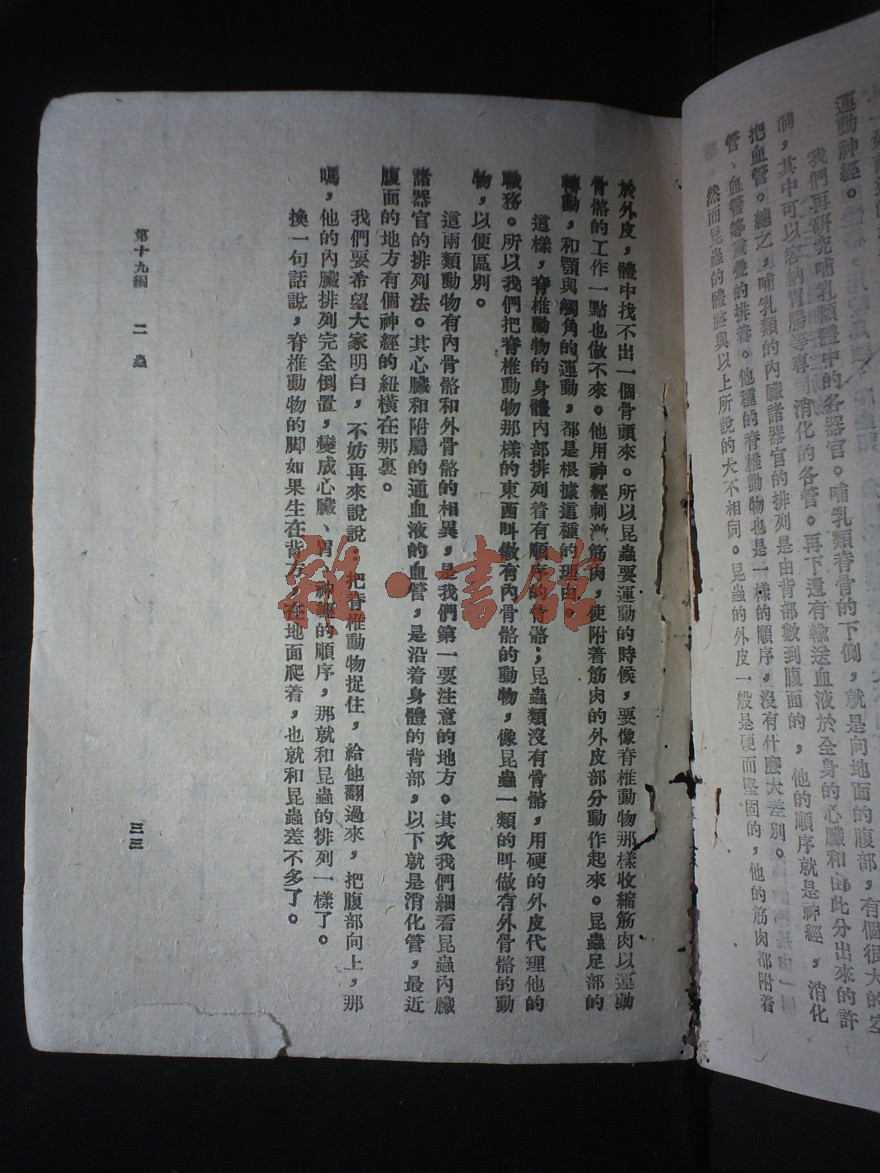 運動神經。
我們再研究哺乳類體中的各器官。哺乳類脊骨的下側，就是向地面的腹部，有個很大的空
洞，其中可以容納胃腸等專司消化的各管。再下還有輸送血液於全身的心臟和由此分出來的許
把血管。總之，哺乳類的內臟諸器官的排列是由背部數到腹面的，他的順序就是神經，消化
管、血管等重疊的排着。他種的脊椎動物也是一樣的順序，沒有什麼大差別。
然而昆蟲的體壁與以上所說的大不相同。昆蟲的外皮一般是硬而堅固的，他的筋肉都附着
於外皮，體中找不出一個骨頭來。所以昆蟲要運動的時候，要像脊椎動物那樣收縮筋肉以運動
骨骼的工作一點也做不來。他用神經刺激筋肉，使附着筋肉的外皮部分動作起來。昆蟲足部的
轉動，和顎與觸角的運動，都是根據這種的理由。
這樣，脊椎動物的身體內部排列着有順序的骨骼；昆蟲類沒有骨骼，用硬的外皮代理他的
職務。所以我們把脊椎動物那樣的東西叫做有內骨骼的動物，像昆蟲一類的叫做有外骨骼的動
物，以便區別。
這兩類動物有內骨骼和外骨骼的相異，是我們第一要注意的地方。其次我們細看昆蟲內臟
諸器官的排列法。其心臟和附屬的通血液的血管，是沿着身體的背部，以下就是消化管，最近
腹面的地方有個神經的紐橫在那裏。
我們要希望大家明白，不妨再來說說：把脊椎動物捉住，給他翻過來，把腹部向上，那
嗎，他的內臟排列完全倒置，變成心臟、胃、神經的順序，那就和昆蟲的排列一樣了。
換一句話說，脊椎動物的脚如果生在背方，在地面爬着，也就和昆蟲差不多了。
第十九編　二　蟲
三三
雜·書館